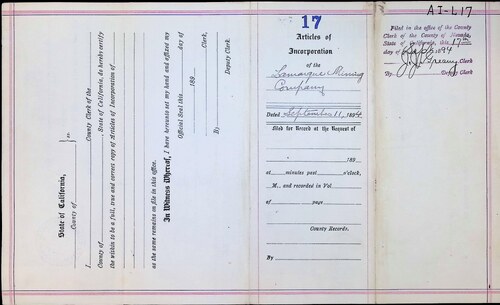 State of California,
County of
ss.
I
County Clerk of the
County of
State of California, do hereby certify
the within to be a full, true and correct copy of Articles of Incorporation of the
as the same remains on file in this office.
In Witness Whereof, I have hereunto set my hand and affixed my
Official Seal this
day of
189
Clerk,
By
Deputy Clerk.
17
Articles of
Incorporation
of the
Lamarque Mining
Company
Dated September 11, 1894
filed for Record at the Request of
189
at minutes past o'clock,
M., and recorded in Vol
of page
County Records.
By
AI-L17
Filed in the office of the County
Clerk of the County of Nevada,
State of California, this 17th
day of Sept 1894
J. J. Greany Clerk
By Deputy Clerk